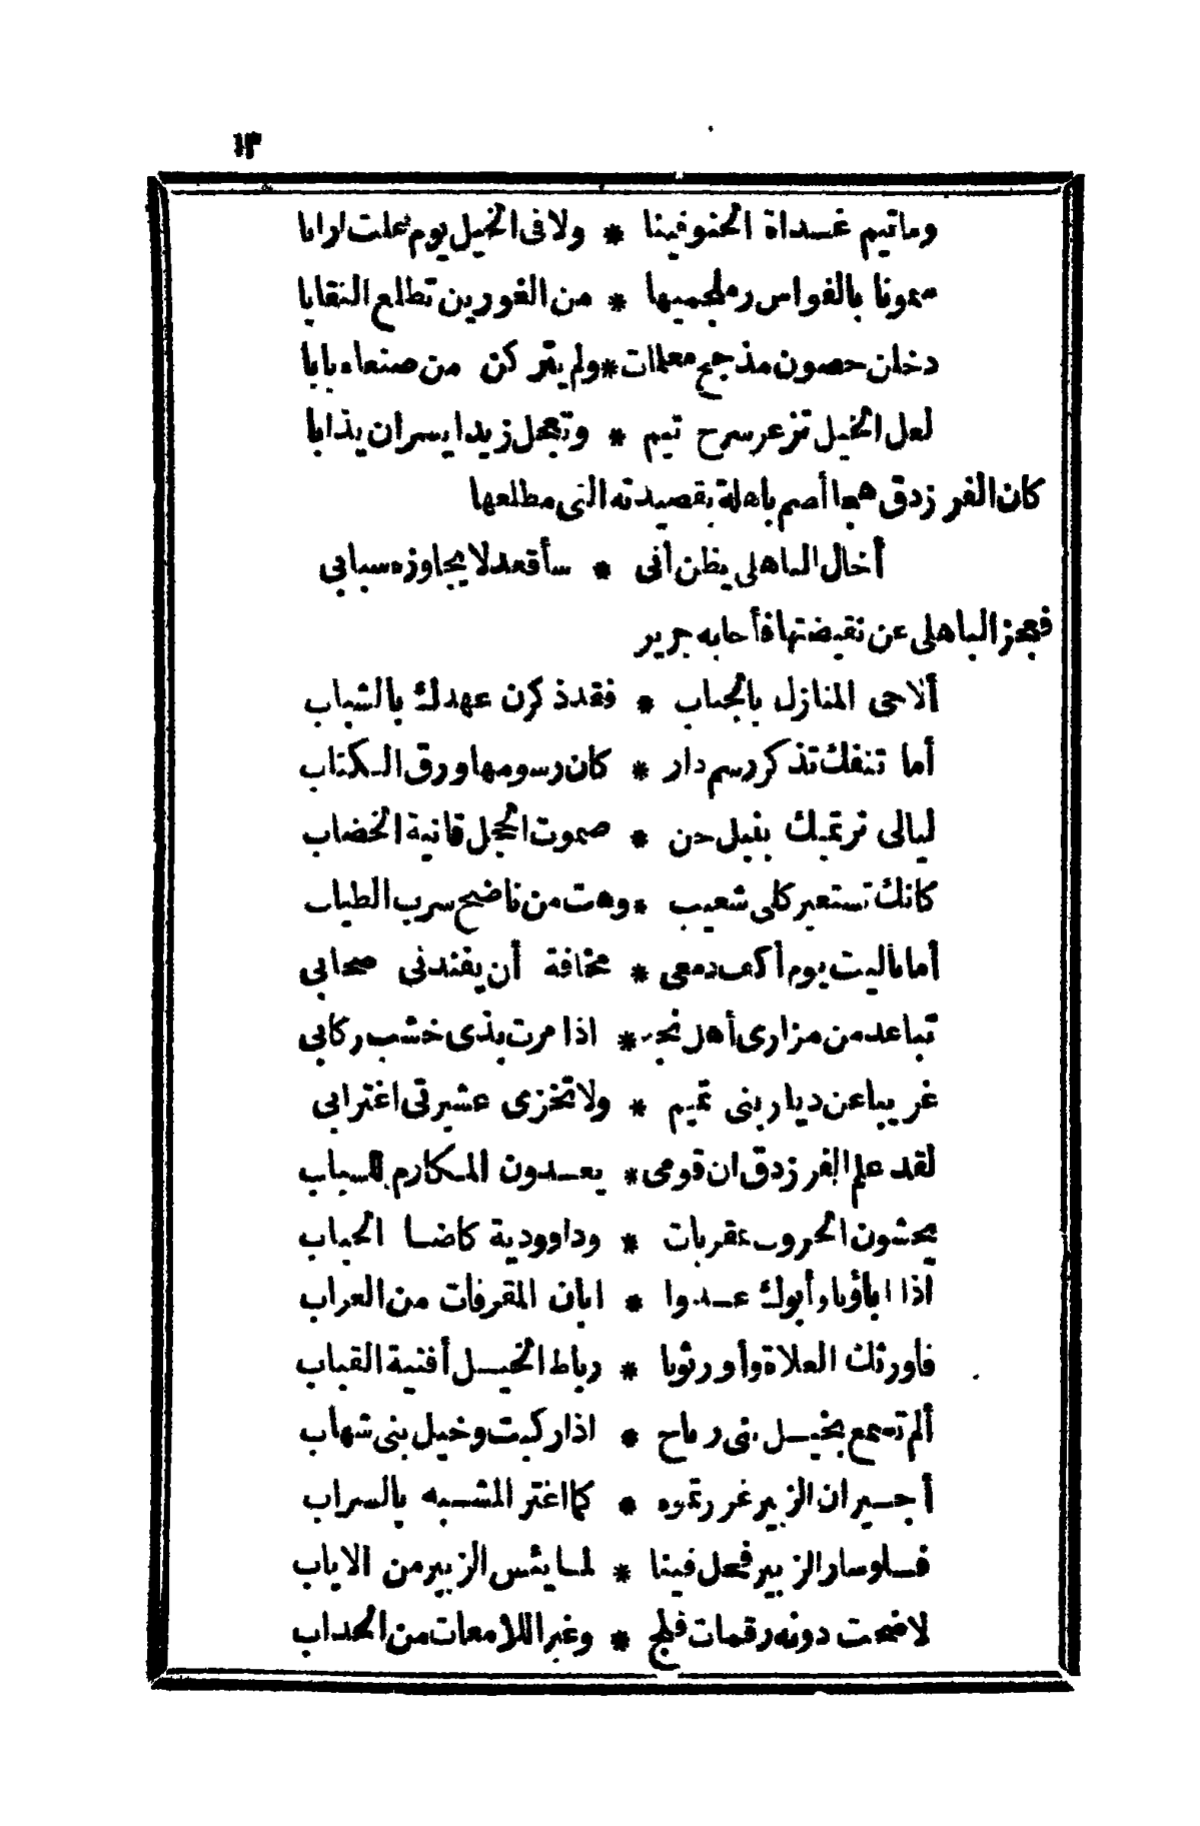 ١٣
وماتيم غـداة الحنوفينا * ولا فى الخيل يوم علت ارابا
سمونا بالفوارس ملجميها * من الغورين تطلع النقابا
دخلن حصون مذحج معلمات * ولم يتركن من صنعاء بابا
لعل الخيل تزعر سرح تيم * وتعجل زبدا يسران يذابا
كان الفرزدق هجا أصم باهلة بقصيدته التى مطلعها
أخال الباهلى يظن أنى * سأقعد لا يجاوزه سبابى
فعجز الباهلى عن نقيضتها فأجابه جرير
ألا حى المنازل بالجناب * فقد ذكرن عهدك بالشباب
أما تنفك تذكر رسم دار * كان رسومها ورق الكتاب
ليالى ترتميك بنبل جن * صموت الحجل قانية الخضاب
كانك تستعير كلى شعيب * وهت من ناضح سرب الطباب
أما باليت يوم أكف دمعى * مخافة أن يفندنى صحابى
تباعد من مزارى أهل نجد * اذا مرت بذى خشب ركابى
غريبا عن ديار بنى تميم * ولا تخزى عشيرتى اغترابى
لقد علم الفرزدق ان قومى * يعـدون المـكارم للسباب
يحشون الحروب مقربات * وداوودية كاضـا الحباب
اذا اباؤنا وأبوك عـدوا * ابان المقرفات من العراب
فاورثك العلاة وأورثونا * رباط الخيـل أفنية القباب
ألم تسمع بخيـل بنى رباح * اذا ركبت وخيل بنى شهاب
أجـيران الزبير غررتموه * كما اغتر المشـبه بالسراب
فـلو سار الزبير فحل فينا * لمـا يئس الزبير من الاياب
لاضحت دونه رقمات فلج * وغبر اللامعات من الحداب